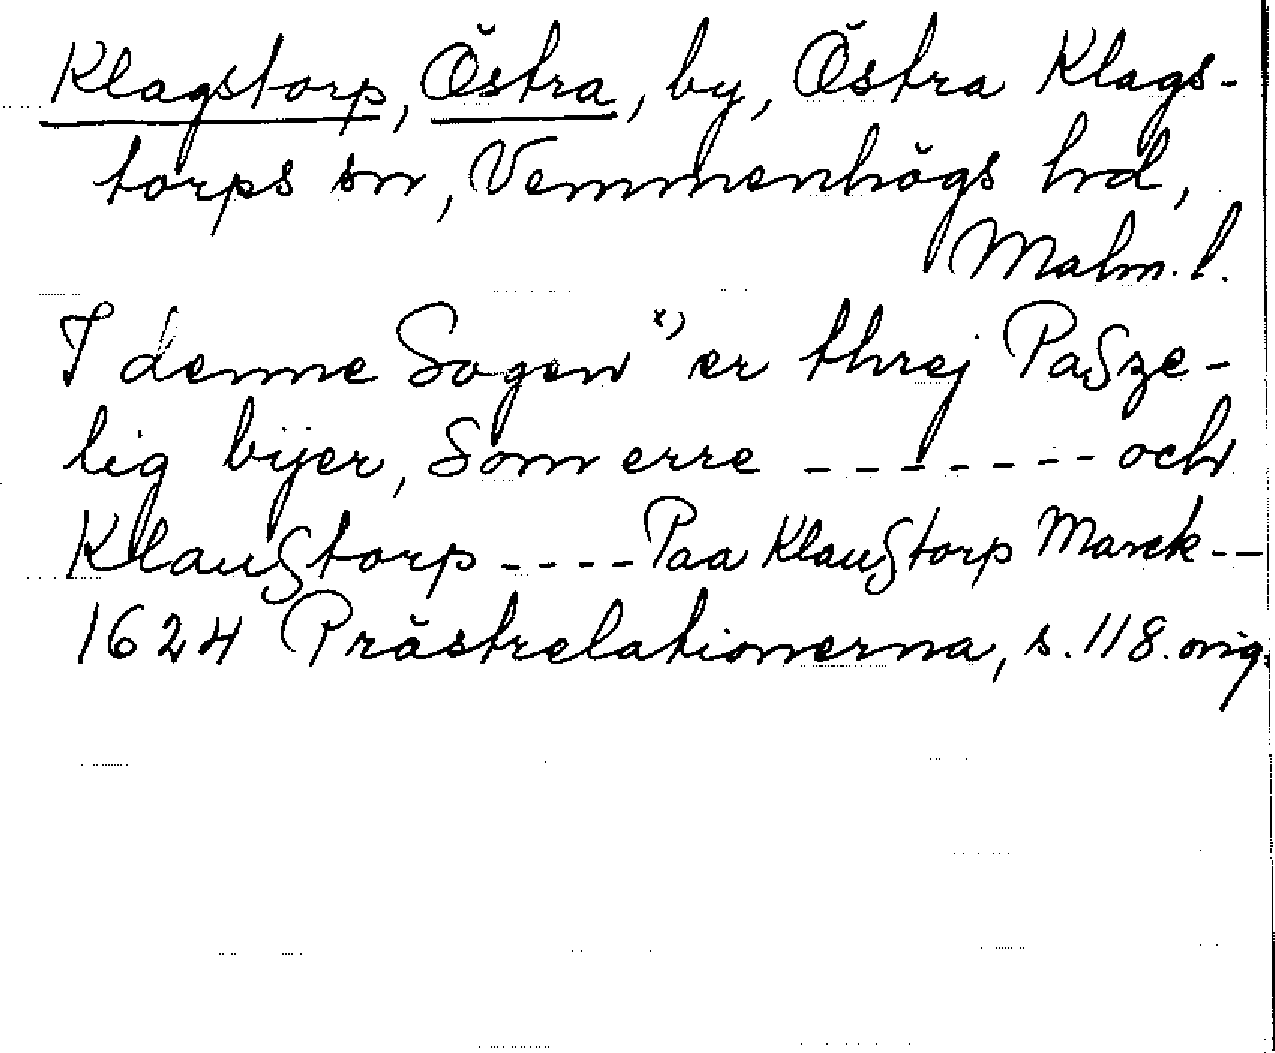 Klagstorp, Östra, by, Östra Klags-
torps sn, Vemmenhögs hd,
Malm. l.
I denne Sogen x) er threj Paßze-
lig bijer, Som erre - - - - - - - och
Klaußtorp - - - - Paa Klaußtorp Marck - -
1624 Prästrelationerna, s. 118. orig.